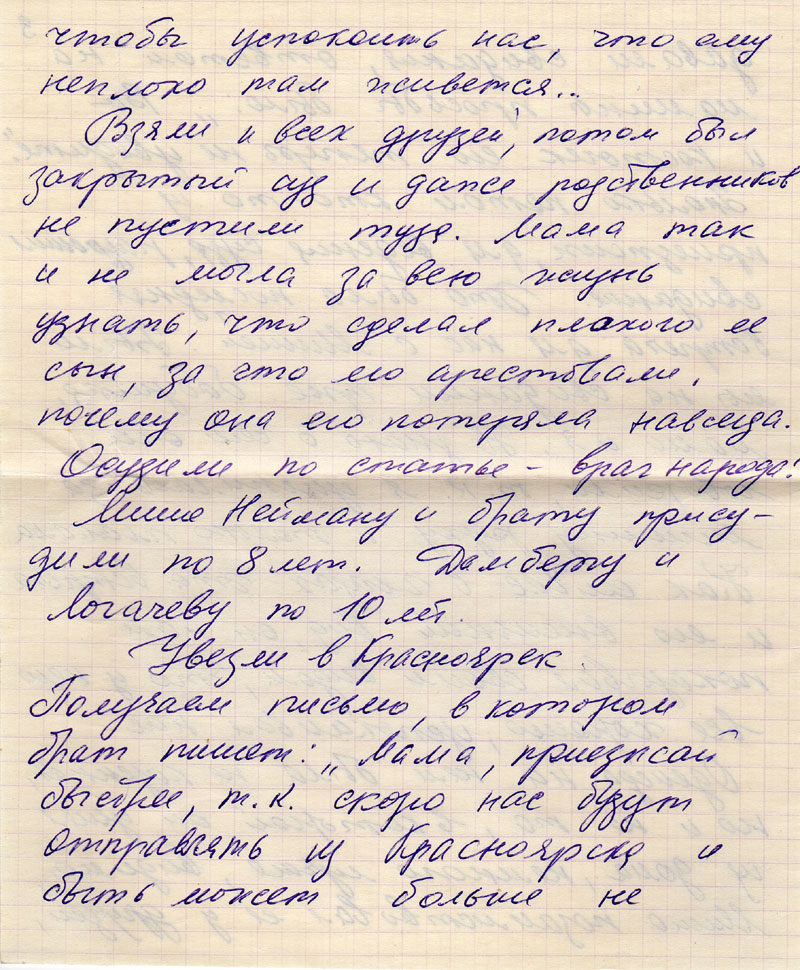 чтобы успокоить нас, что ему
неплохо там живется...
Взяли и всех друзей, потом был
закрытый суд и даже родственников
не пустили туда. Мама так
и не могла за всю жизнь
узнать, что сделал плохого ее
сын, за что его арестовали,
почему она его потеряла навсегда.
Осудили по статье - враг народа!
Мише Нейману и брату прису-
дили по 8 лет. Дамбергу и
Логачеву по 10 лет.
Увезли в Красноярск.
Получаем письмо, в котором
брат пишет: „Мама, приезжай
быстрее, т.к. скоро нас будут
отправлять из Красноярска и
быть может больше не